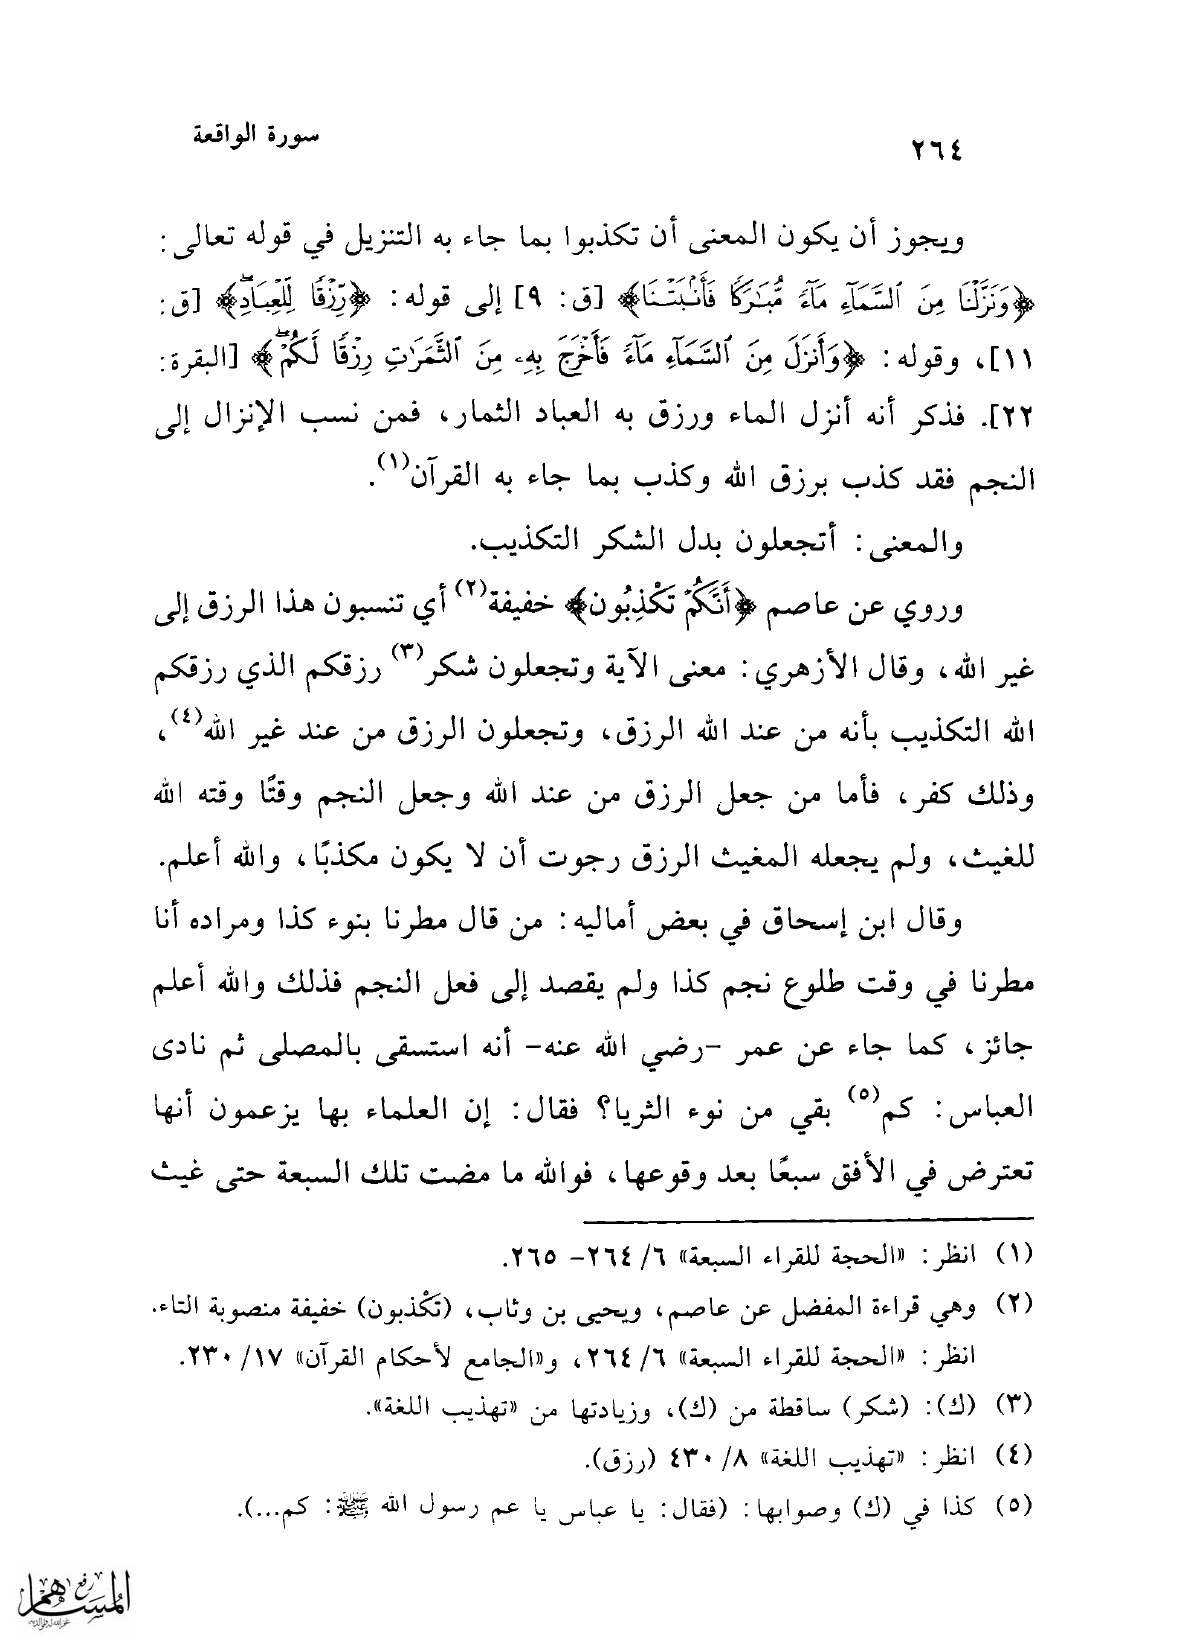 سورة الواقعة
٢٦٤
ويجوز أن يكون المعنى أن تكذبوا بما جاء به التنزيل في قوله تعالى:
﴿وَنَزَّلْنَا مِنَ السَّمَآءِ مَآءً مُّبَٰرَكًا فَأَنۢبَتْنَا﴾ [ق: ٩] إلى قوله: ﴿رِّزْقًا لِّلْعِبَادِۖ﴾ [ق:
١١]، وقوله: ﴿وَأَنزَلَ مِنَ السَّمَآءِ مَآءً فَأَخْرَجَ بِهِۦ مِنَ الثَّمَرَٰتِ رِزْقًا لَّكُمْۖ﴾ [البقرة:
٢٢]. فذكر أنه أنزل الماء ورزق به العباد الثمار، فمن نسب الإنزال إلى
النجم فقد كذب برزق الله وكذب بما جاء به القرآن(١).
والمعنى: أتجعلون بدل الشكر التكذيب.
وروي عن عاصم ﴿أَنَّكُمْ تَكْذِبُون﴾ خفيفة(٢) أي تنسبون هذا الرزق إلى
غير الله، وقال الأزهري: معنى الآية وتجعلون شكر(٣) رزقكم الذي رزقكم
الله التكذيب بأنه من عند الله الرزق، وتجعلون الرزق من عند غير الله(٤)،
وذلك كفر، فأما من جعل الرزق من عند الله وجعل النجم وقتًا وقته الله
للغيث، ولم يجعله المغيث الرزق رجوت أن لا يكون مكذبًا، والله أعلم.
وقال ابن إسحاق في بعض أماليه: من قال مطرنا بنوء كذا ومراده أنا
مطرنا في وقت طلوع نجم كذا ولم يقصد إلى فعل النجم فذلك والله أعلم
جائز، كما جاء عن عمر -رضي الله عنه- أنه استسقى بالمصلى ثم نادى
العباس: كم(٥) بقي من نوء الثريا؟ فقال: إن العلماء بها يزعمون أنها
تعترض في الأفق سبعًا بعد وقوعها، فوالله ما مضت تلك السبعة حتى غيث
(١) انظر: «الحجة للقراء السبعة» ٦/ ٢٦٤- ٢٦٥.
(٢) وهي قراءة المفضل عن عاصم، ويحيى بن وثاب، (تَكْذبون) خفيفة منصوبة التاء.
انظر: «الحجة للقراء السبعة» ٦/ ٢٦٤، و«الجامع لأحكام القرآن» ١٧/ ٢٣٠.
(٣) (ك): (شكر) ساقطة من (ك)، وزيادتها من «تهذيب اللغة».
(٤) انظر: «تهذيب اللغة» ٨/ ٤٣٠ (رزق).
(٥) كذا في (ك) وصوابها: (فقال: يا عباس يا عم رسول الله ﷺ: كم...).
رفع
المساهم